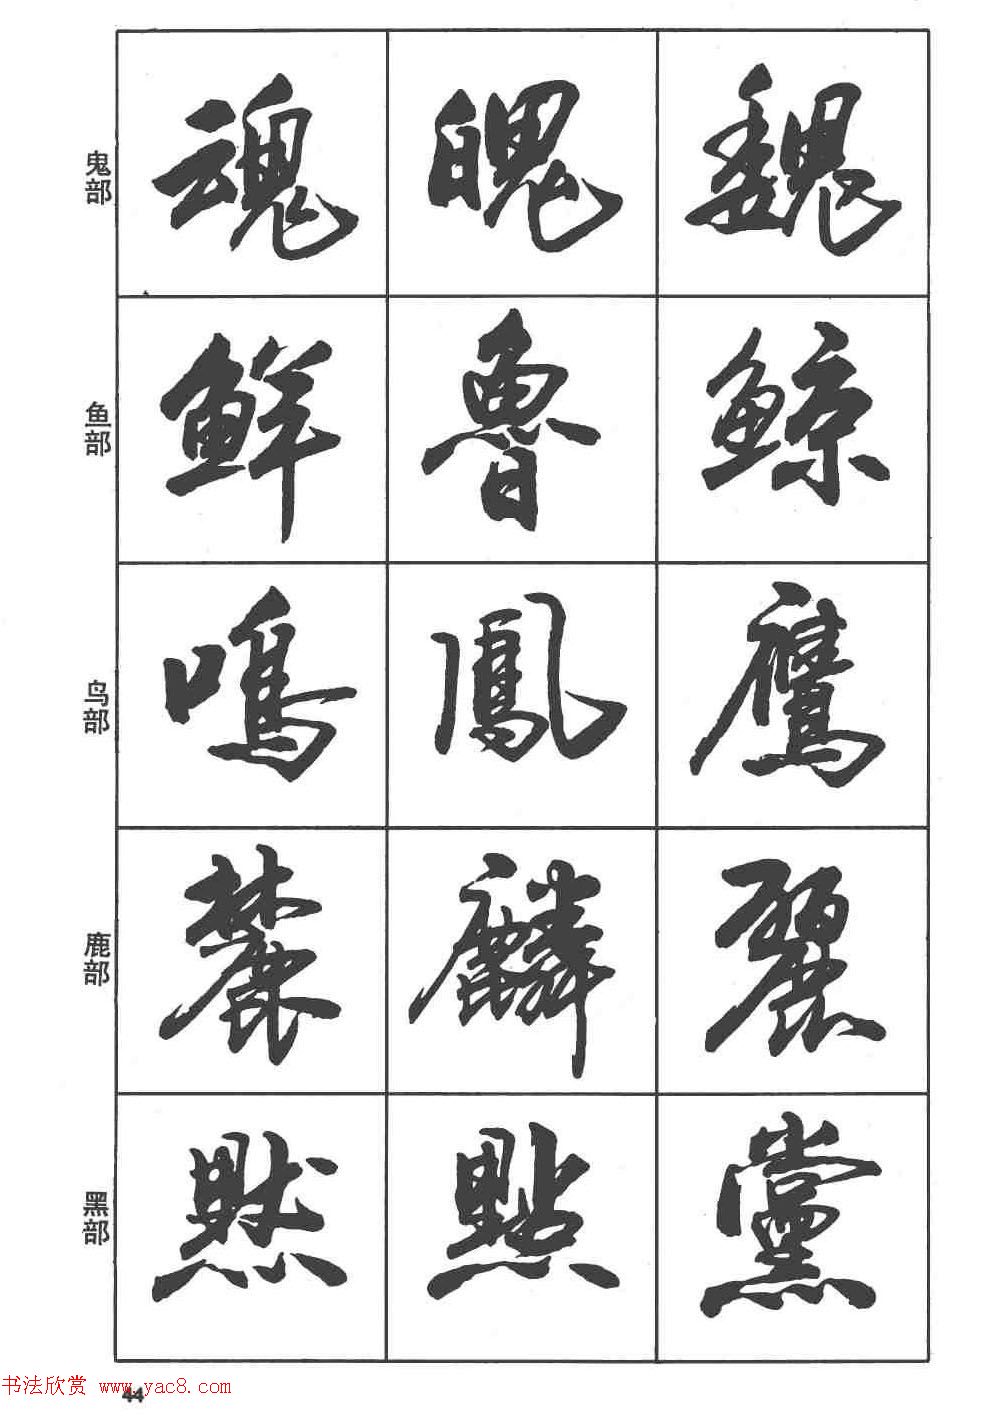 鬼部 魂 魄 魏
鱼部 鲜 魯 鯨
鸟部 鳴 鳳 鷹
鹿部 麓 麟 麗
黑部 默 點 黨
44
书法欣赏 www.yac8.com